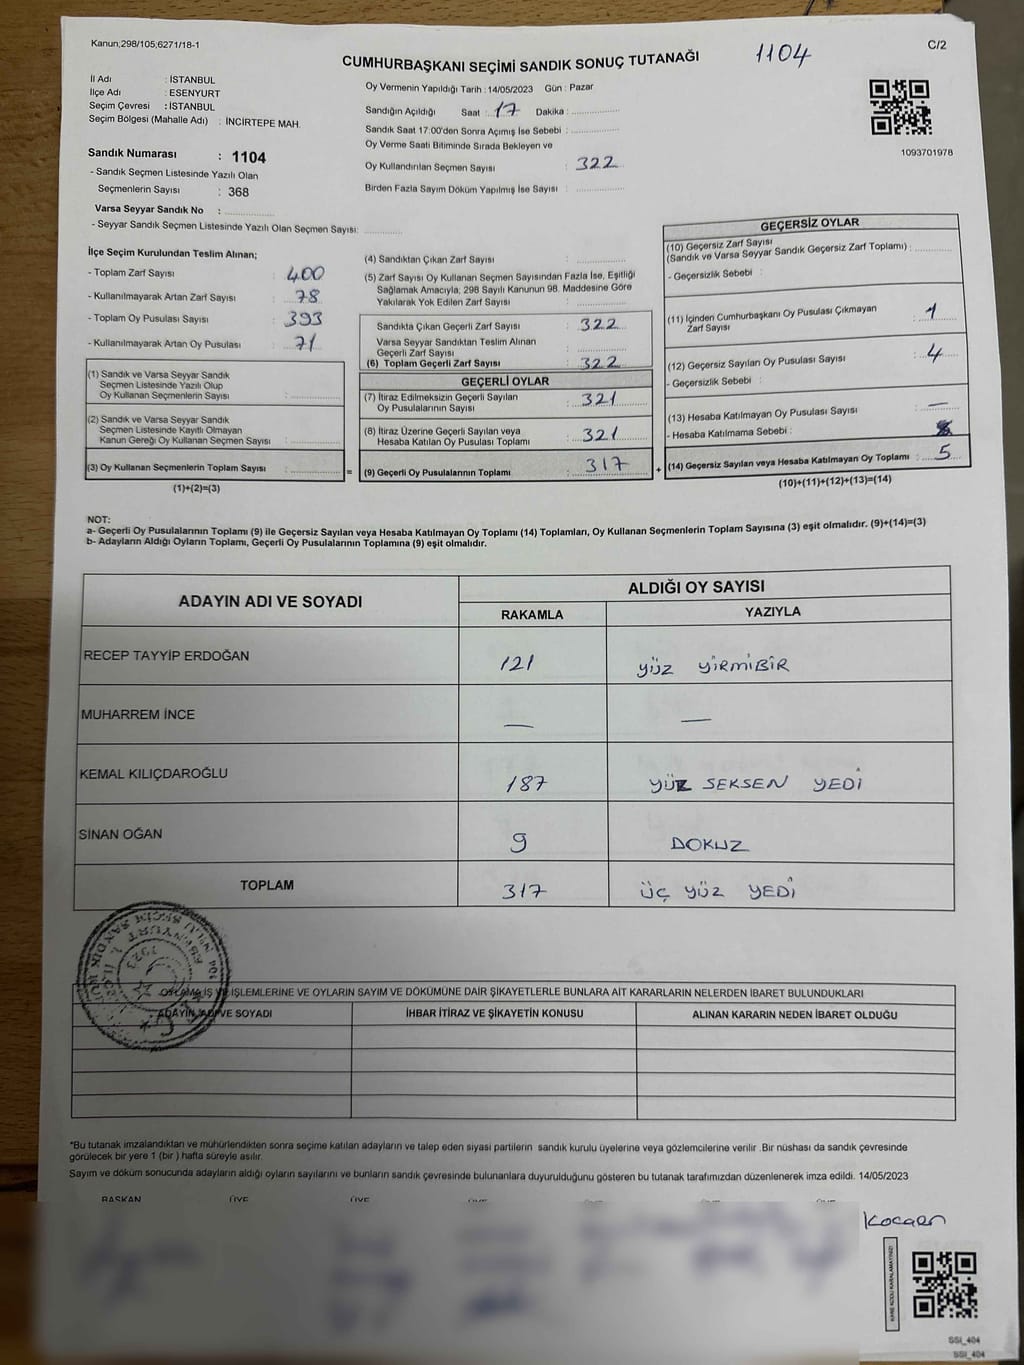 Kanun;298/105;6271/18-1
1104
C/2
CUMHURBAŞKANI SEÇİMİ SANDIK SONUÇ TUTANAĞI
İl Adı : İSTANBUL
İlçe Adı : ESENYURT
Seçim Çevresi : İSTANBUL
Seçim Bölgesi (Mahalle Adı) : İNCİRTEPE MAH.
Sandık Numarası : 1104
- Sandık Seçmen Listesinde Yazılı Olan
Seçmenlerin Sayısı : 368
Varsa Seyyar Sandık No :
- Seyyar Sandık Seçmen Listesinde Yazılı Olan Seçmen Sayısı:
Oy Vermenin Yapıldığı Tarih : 14/05/2023 Gün : Pazar
Sandığın Açıldığı Saat : 17 Dakika :
Sandık Saat 17:00'den Sonra Açımış İse Sebebi :
Oy Verme Saati Bitiminde Sırada Bekleyen ve
Oy Kullandırılan Seçmen Sayısı : 322
Birden Fazla Sayım Döküm Yapılmış İse Sayısı :
1093701978
İlçe Seçim Kurulundan Teslim Alınan;
- Toplam Zarf Sayısı : 400
- Kullanılmayarak Artan Zarf Sayısı : 78
- Toplam Oy Pusulası Sayısı : 393
- Kullanılmayarak Artan Oy Pusulası : 71
(1) Sandık ve Varsa Seyyar Sandık
Seçmen Listesinde Yazılı Olup
Oy Kullanan Seçmenlerin Sayısı :
(2) Sandık ve Varsa Seyyar Sandık
Seçmen Listesinde Kayıtlı Olmayan
Kanun Gereği Oy Kullanan Seçmen Sayısı :
(3) Oy Kullanan Seçmenlerin Toplam Sayısı :
(1)+(2)=(3)
(4) Sandıktan Çıkan Zarf Sayısı :
(5) Zarf Sayısı Oy Kullanan Seçmen Sayısından Fazla İse, Eşitliği
Sağlamak Amacıyla; 298 Sayılı Kanunun 98. Maddesine Göre
Yakılarak Yok Edilen Zarf Sayısı :
Sandıkta Çıkan Geçerli Zarf Sayısı : 322
Varsa Seyyar Sandıktan Teslim Alınan
Geçerli Zarf Sayısı :
(6) Toplam Geçerli Zarf Sayısı : 322
GEÇERLİ OYLAR
(7) İtiraz Edilmeksizin Geçerli Sayılan
Oy Pusulalarının Sayısı : 321
(8) İtiraz Üzerine Geçerli Sayılan veya
Hesaba Katılan Oy Pusulası Toplamı : 321
= (9) Geçerli Oy Pusulalarının Toplamı : 317 +
GEÇERSİZ OYLAR
(10) Geçersiz Zarf Sayısı
(Sandık ve Varsa Seyyar Sandık Geçersiz Zarf Toplamı) :
- Geçersizlik Sebebi :
(11) İçinden Cumhurbaşkanı Oy Pusulası Çıkmayan
Zarf Sayısı : 1
(12) Geçersiz Sayılan Oy Pusulası Sayısı : 4
- Geçersizlik Sebebi :
(13) Hesaba Katılmayan Oy Pusulası Sayısı : —
- Hesaba Katılmama Sebebi :
(14) Geçersiz Sayılan veya Hesaba Katılmayan Oy Toplamı : 5
(10)+(11)+(12)+(13)=(14)
NOT:
a- Geçerli Oy Pusulalarının Toplamı (9) ile Geçersiz Sayılan veya Hesaba Katılmayan Oy Toplamı (14) Toplamları, Oy Kullanan Seçmenlerin Toplam Sayısına (3) eşit olmalıdır. (9)+(14)=(3)
b- Adayların Aldığı Oyların Toplamı, Geçerli Oy Pusulalarının Toplamına (9) eşit olmalıdır.
ADAYIN ADI VE SOYADI
ALDIĞI OY SAYISI
RAKAMLA YAZIYLA
RECEP TAYYİP ERDOĞAN 121 YÜZ YİRMİBİR
MUHARREM İNCE — —
KEMAL KILIÇDAROĞLU 187 YÜZ SEKSEN YEDİ
SİNAN OĞAN 9 DOKUZ
TOPLAM 317 ÜÇ YÜZ YEDİ
İŞLEMLERİNE VE OYLARIN SAYIM VE DÖKÜMÜNE DAİR ŞİKAYETLERLE BUNLARA AİT KARARLARIN NELERDEN İBARET BULUNDUKLARI
ADAYIN ADI VE SOYADI İHBAR İTİRAZ VE ŞİKAYETİN KONUSU ALINAN KARARIN NEDEN İBARET OLDUĞU
*Bu tutanak imzalandıktan ve mühürlendikten sonra seçime katılan adayların ve talep eden siyasi partilerin sandık kurulu üyelerine veya gözlemcilerine verilir. Bir nüshası da sandık çevresinde
görülecek bir yere 1 (bir ) hafta süreyle asılır.
Sayım ve döküm sonucunda adayların aldığı oyların sayılarını ve bunların sandık çevresinde bulunanlara duyurulduğunu gösteren bu tutanak tarafımızdan düzenlenerek imza edildi. 14/05/2023
BAŞKAN ÜYE ÜYE
SSI_404
SSI_404